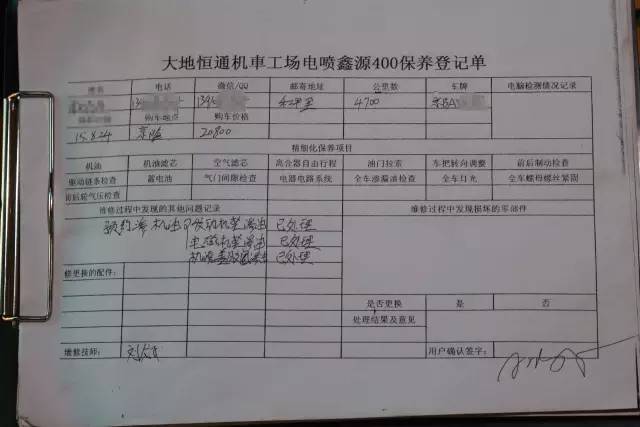 大地恒通机車工场电喷鑫源400保养登记单
姓名 电话 微信/QQ 邮寄地址 公里数 车牌 电脑检测情况记录
139 4700 京BA
购车地点 购车价格
15.8.24 京临 20800
精细化保养项目
机油 机油滤芯 空气滤芯 离合器自由行程 油门拉索 车把转向调整 前后制动检查
驱动链条检查 蓄电池 气门间隙检查 电器电路系统 全车渗漏油检查 全车灯光 全车螺母螺丝紧固
前后轮气压检查
维修过程中发现的其他问题记录 维修过程中发现损坏的零部件
机油 发动机 渗油 已处理
渗油 已处理
已处理
修更换的配件:
是否更换 是 否
处理结果及意见
维修技师: 用户确认签字: